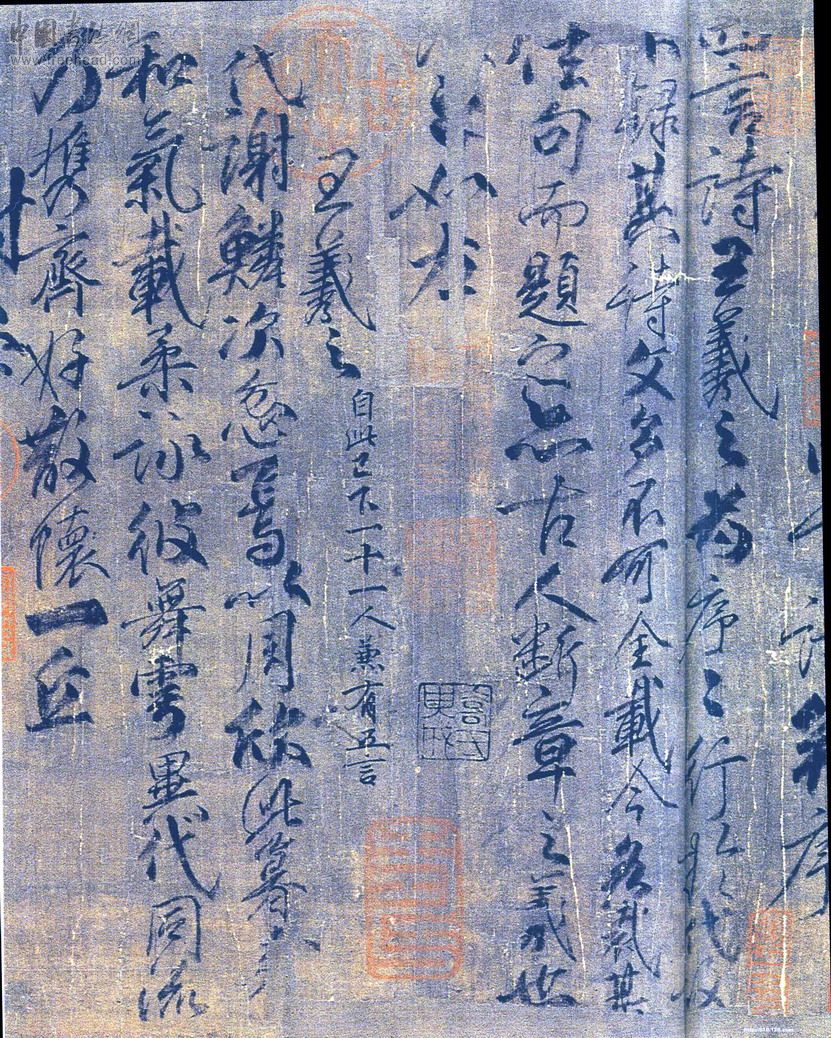 四言詩王羲之為序〻行於代故
不錄其詩文多不可全載今各裁其
佳句而題之亦古人斷章之義也
如左
王羲之 自此已下一十一人兼有五言
代謝鱗次忽焉以周欣此暮春
和氣載柔詠彼舞雩異代同流
乃攜齊好散懷一丘
中國書法網
www.freehead.com